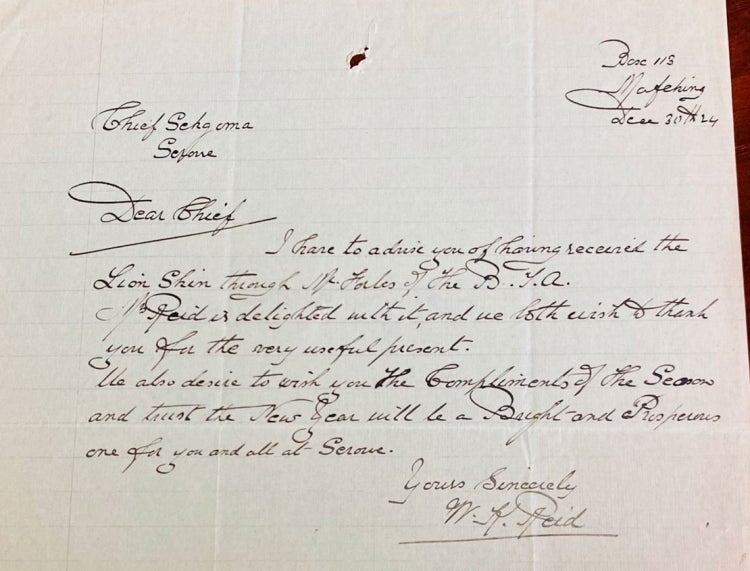 Box 113
Mafeking
Dec 30th 24
Chief Sekgoma
Serowe
Dear Chief
I have to advise you of having received the
Lion Skin through Mr Forbes of the B.T.A.
Mrs Reid is delighted with it, and we both wish to thank
you for the very useful present.
We also desire to wish you the Compliments of the Season
and trust the New Year will be a Bright and Prosperous
one for you and all at Serowe.
Yours Sincerely
W. H. Reid